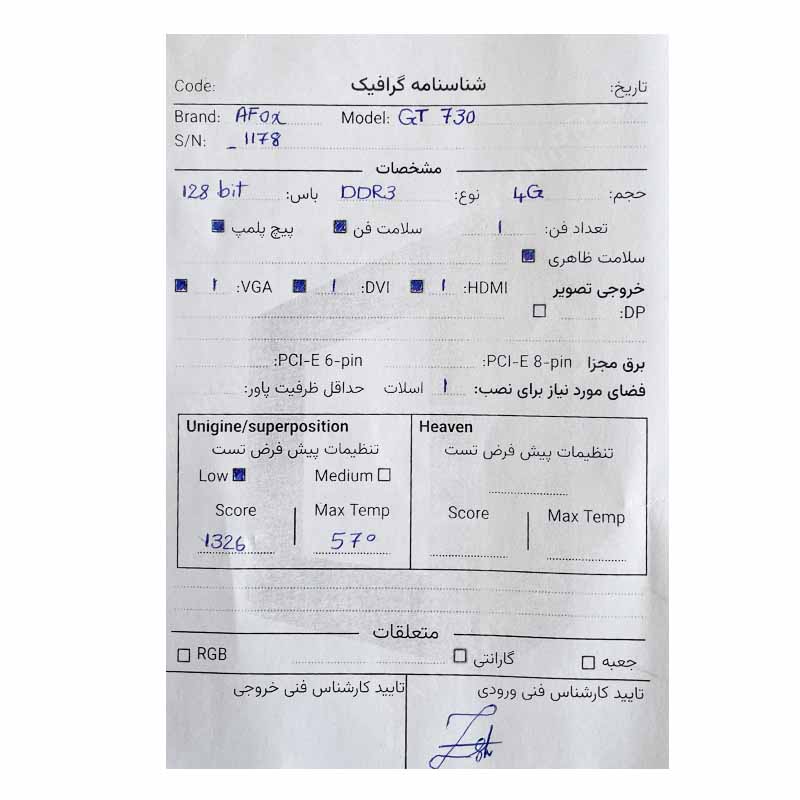 تاریخ: شناسنامه گرافیک Code:
Brand: AFOX Model: GT 730
S/N: _1178
مشخصات
حجم: 4G نوع: DDR3 باس: 128 bit
تعداد فن: 1 سلامت فن پیچ پلمپ
سلامت ظاهری
خروجی تصویر HDMI: 1 DVI: 1 VGA: 1
DP:
برق مجزا PCI-E 8-pin: PCI-E 6-pin:
فضای مورد نیاز برای نصب: 1 اسلات حداقل ظرفیت پاور:
Unigine/superposition Heaven
تنظیمات پیش فرض تست تنظیمات پیش فرض تست
Low Medium
Score Max Temp Score Max Temp
1326 57°
متعلقات
جعبه گارانتی RGB
تایید کارشناس فنی ورودی تایید کارشناس فنی خروجی